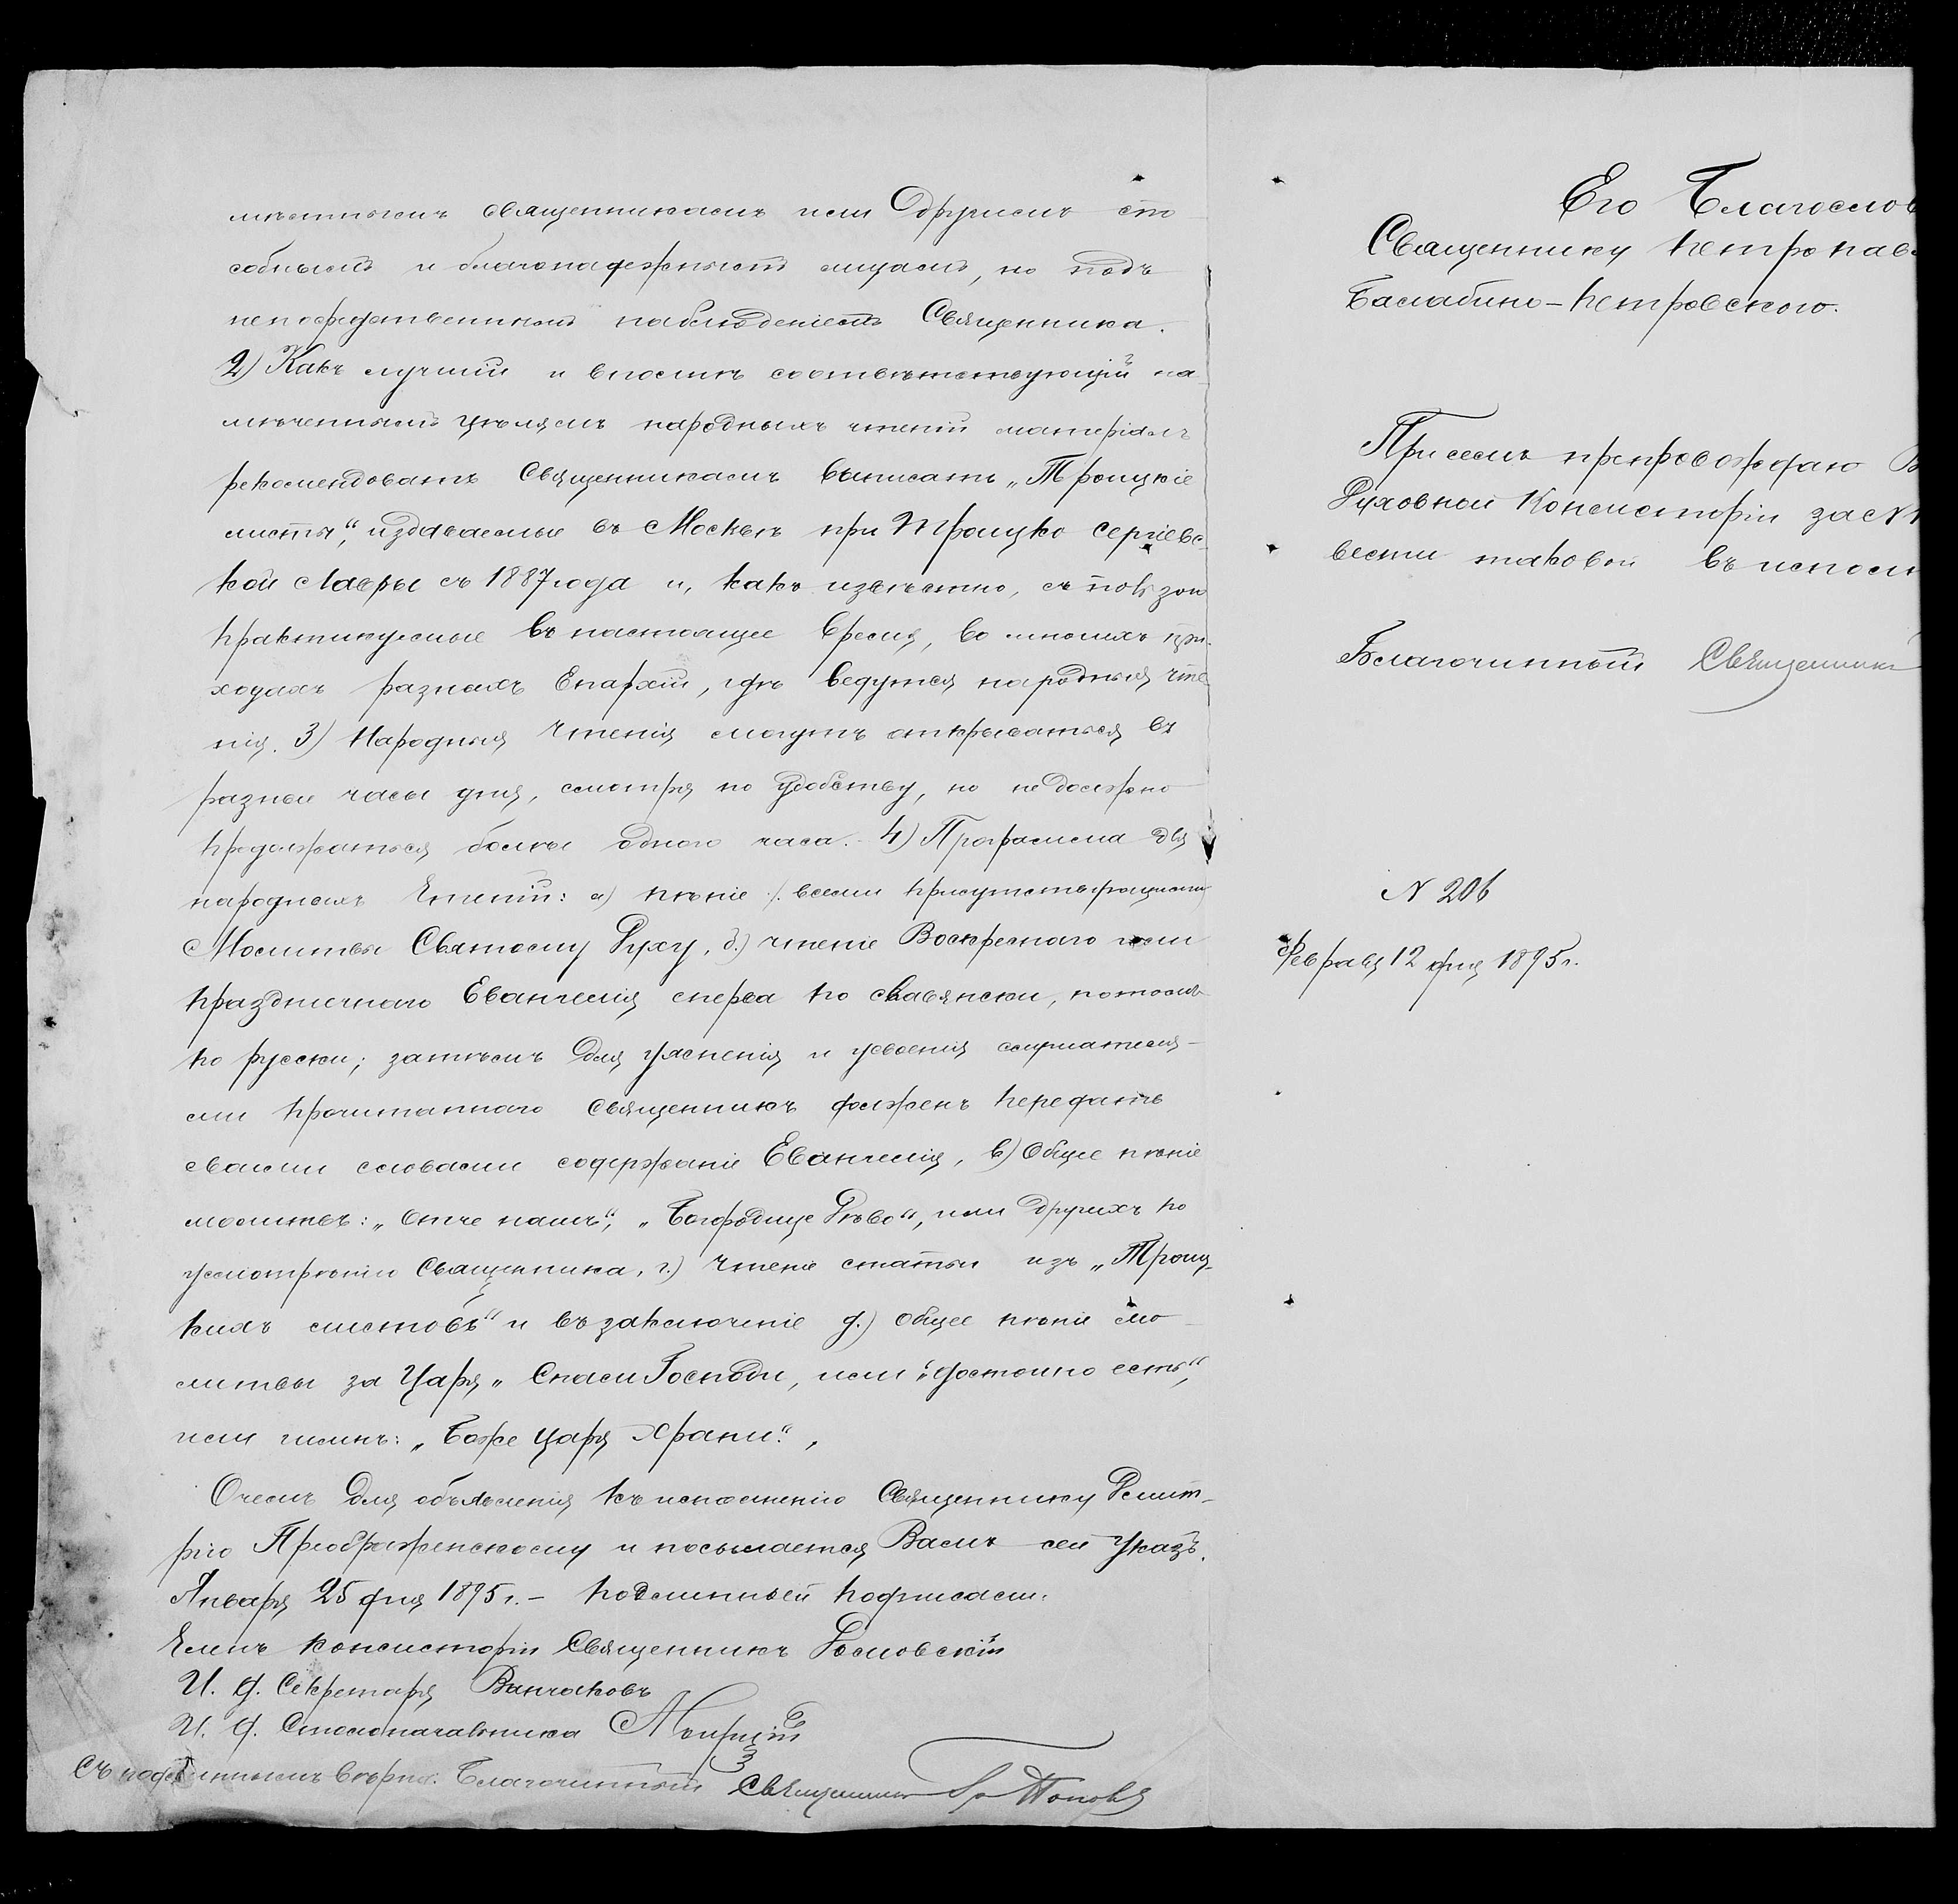 мѣстнымъ священникамъ или другимъ спо
собнымъ и благонадежнымъ лицамъ, но подъ
непосредственнымъ наблюденіемъ Священника.
2) Какъ лучшій и вполнѣ соотвѣтствующій на
мѣченнымъ цѣлямъ народныхъ чтеній матеріалъ
рекомендовать Священникамъ выписать „Троицкіе
листы“, издаваемые въ Москвѣ при Троицко Сергіевс
кой Лавры съ 1887 года и, какъ извѣстно, съ пользою
практикуемые въ настоящее время, во многихъ при-
ходахъ разныхъ Епархій, гдѣ ведутся народныя чте-
нія. 3) Народныя Чтенія могутъ открываться въ
разные часы дня, смотря по удобству, но не должно
продолжаться болѣе одного часа. 4) Программа для
народныхъ Чтеній: а) пѣніе /. всеми присутствующими
Молитвы Святому Духу, б.) чтеніе Воскреснаго или
праздничнаго Евангелія сперва по славянски, потомъ
по русски; затѣмъ для уясненія и усвоенія слушателя-
ми прочитаннаго священникъ долженъ передать
своими словами содержаніе Евангелія, в) Общее пѣніе
молитвъ: „Отче нашъ“, „Богородице Дѣво“, или другихъ по
усмотрѣнію Священника, г.) Чтеніе статьи изъ „Троиц-
кихъ листовъ“ и въ заключеніе д.) общее пѣніе мо
литвы за Царя „Спаси Господи, или „достойно есть“,
или гимнъ: „Боже Царя храни“.
О чемъ для объявленія къ исполненію Священнику Димит-
рію Преображенскому и посылается Вамъ сей Указъ.
Января 25 дня 1895 г. – Подлинный подписали.
Членъ консисторіи Священникъ
И. д. Секретаря
И. д. Столоначальника
Съ подлиннымъ вѣрно. Благочинный Священникъ Поповъ
Его Благослов
Священнику Петропав
Балабино-Петровского.
При семъ препровождаю В
Духовной Консисторіи за №
вести таковой въ исполн
Благочинный Священникъ
N 206
Февраля 12 дня 1895 г.